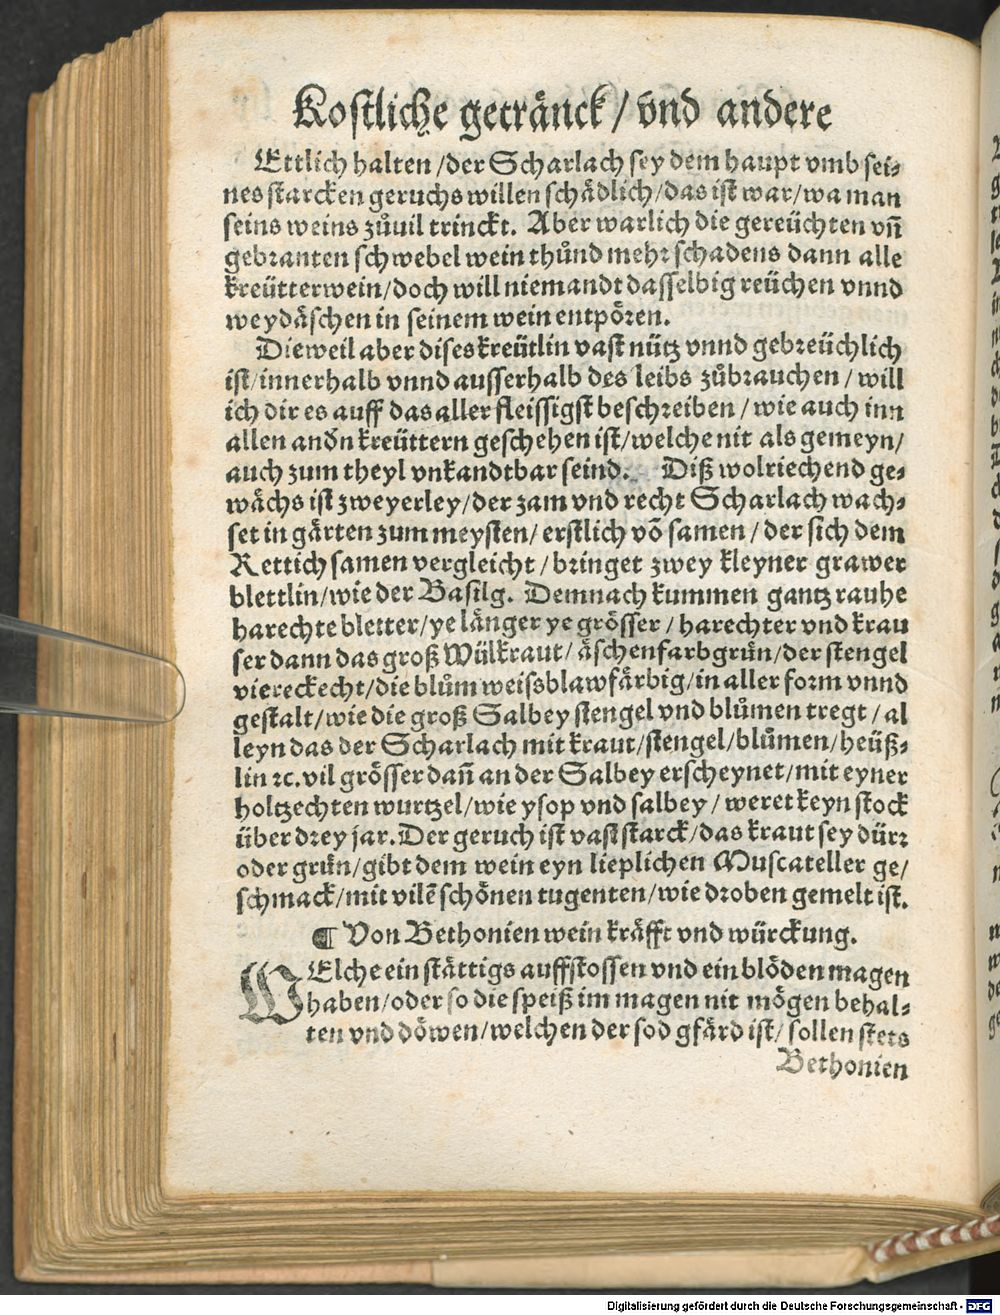 Kostliche getränck / vnd andere
Ettlich halten / der Scharlach sey dem haupt vmb sei⸗
nes starcken geruchs willen schådlich / das ist war / wa man
seins weins zůuil trinckt. Aber warlich die gereüchten vñ
gebranten schwebel wein thůnd mehr schadens dann alle
kreütterwein / doch will niemandt dasselbig reüchen vnnd
weydåschen in seinem wein entpören.
Dieweil aber dises kreütlin vast nütz vnnd gebreüchlich
ist / innerhalb vnnd ausserhalb des leibs zůbrauchen / will
ich dir es auff das aller fleissigst beschreiben / wie auch inn
allen andn̄ kreüttern geschehen ist / welche nit als gemeyn /
auch zum theyl vnkandtbar seind. Diß wolriechend ge⸗
wåchs ist zweyerley / der zam vnd recht Scharlach wach⸗
set in gårten zum meysten / erstlich võ samen / der sich dem
Rettich samen vergleicht / bringet zwey kleyner grawer
blettlin / wie der Basilg. Demnach kummen gantz rauhe
harechte bletter / ye långer ye grösser / harechter vnd krau
ser dann das groß Wülkraut / åschenfarbgrůn / der stengel
viereckecht / die blům weissblawfårbig / in aller form vnnd
gestalt / wie die groß Salbey stengel vnd blůmen tregt / al
leyn das der Scharlach mit kraut / stengel / blůmen / heüß⸗
lin ꝛc. vil grösser dañ an der Salbey erscheynet / mit eyner
holtzechten wurtzel / wie ysop vnd salbey / weret keyn stock
über drey jar. Der geruch ist vast starck / das kraut sey dürr
oder grůn / gibt dem wein eyn lieplichen Muscateller ge /
schmack / mit vilẽ schönen tugenten / wie droben gemelt ist.
¶ Von Bethonien wein kräfft vnd würckung.
WElche ein ståttigs auffstossen vnd ein blöden magen
haben / oder so die speiß im magen nit mögen behal⸗
ten vnd döwen / welchen der sod gfård ist / sollen stets
Bethonien
Digitalisierung gefördert durch die Deutsche Forschungsgemeinschaft - DFG